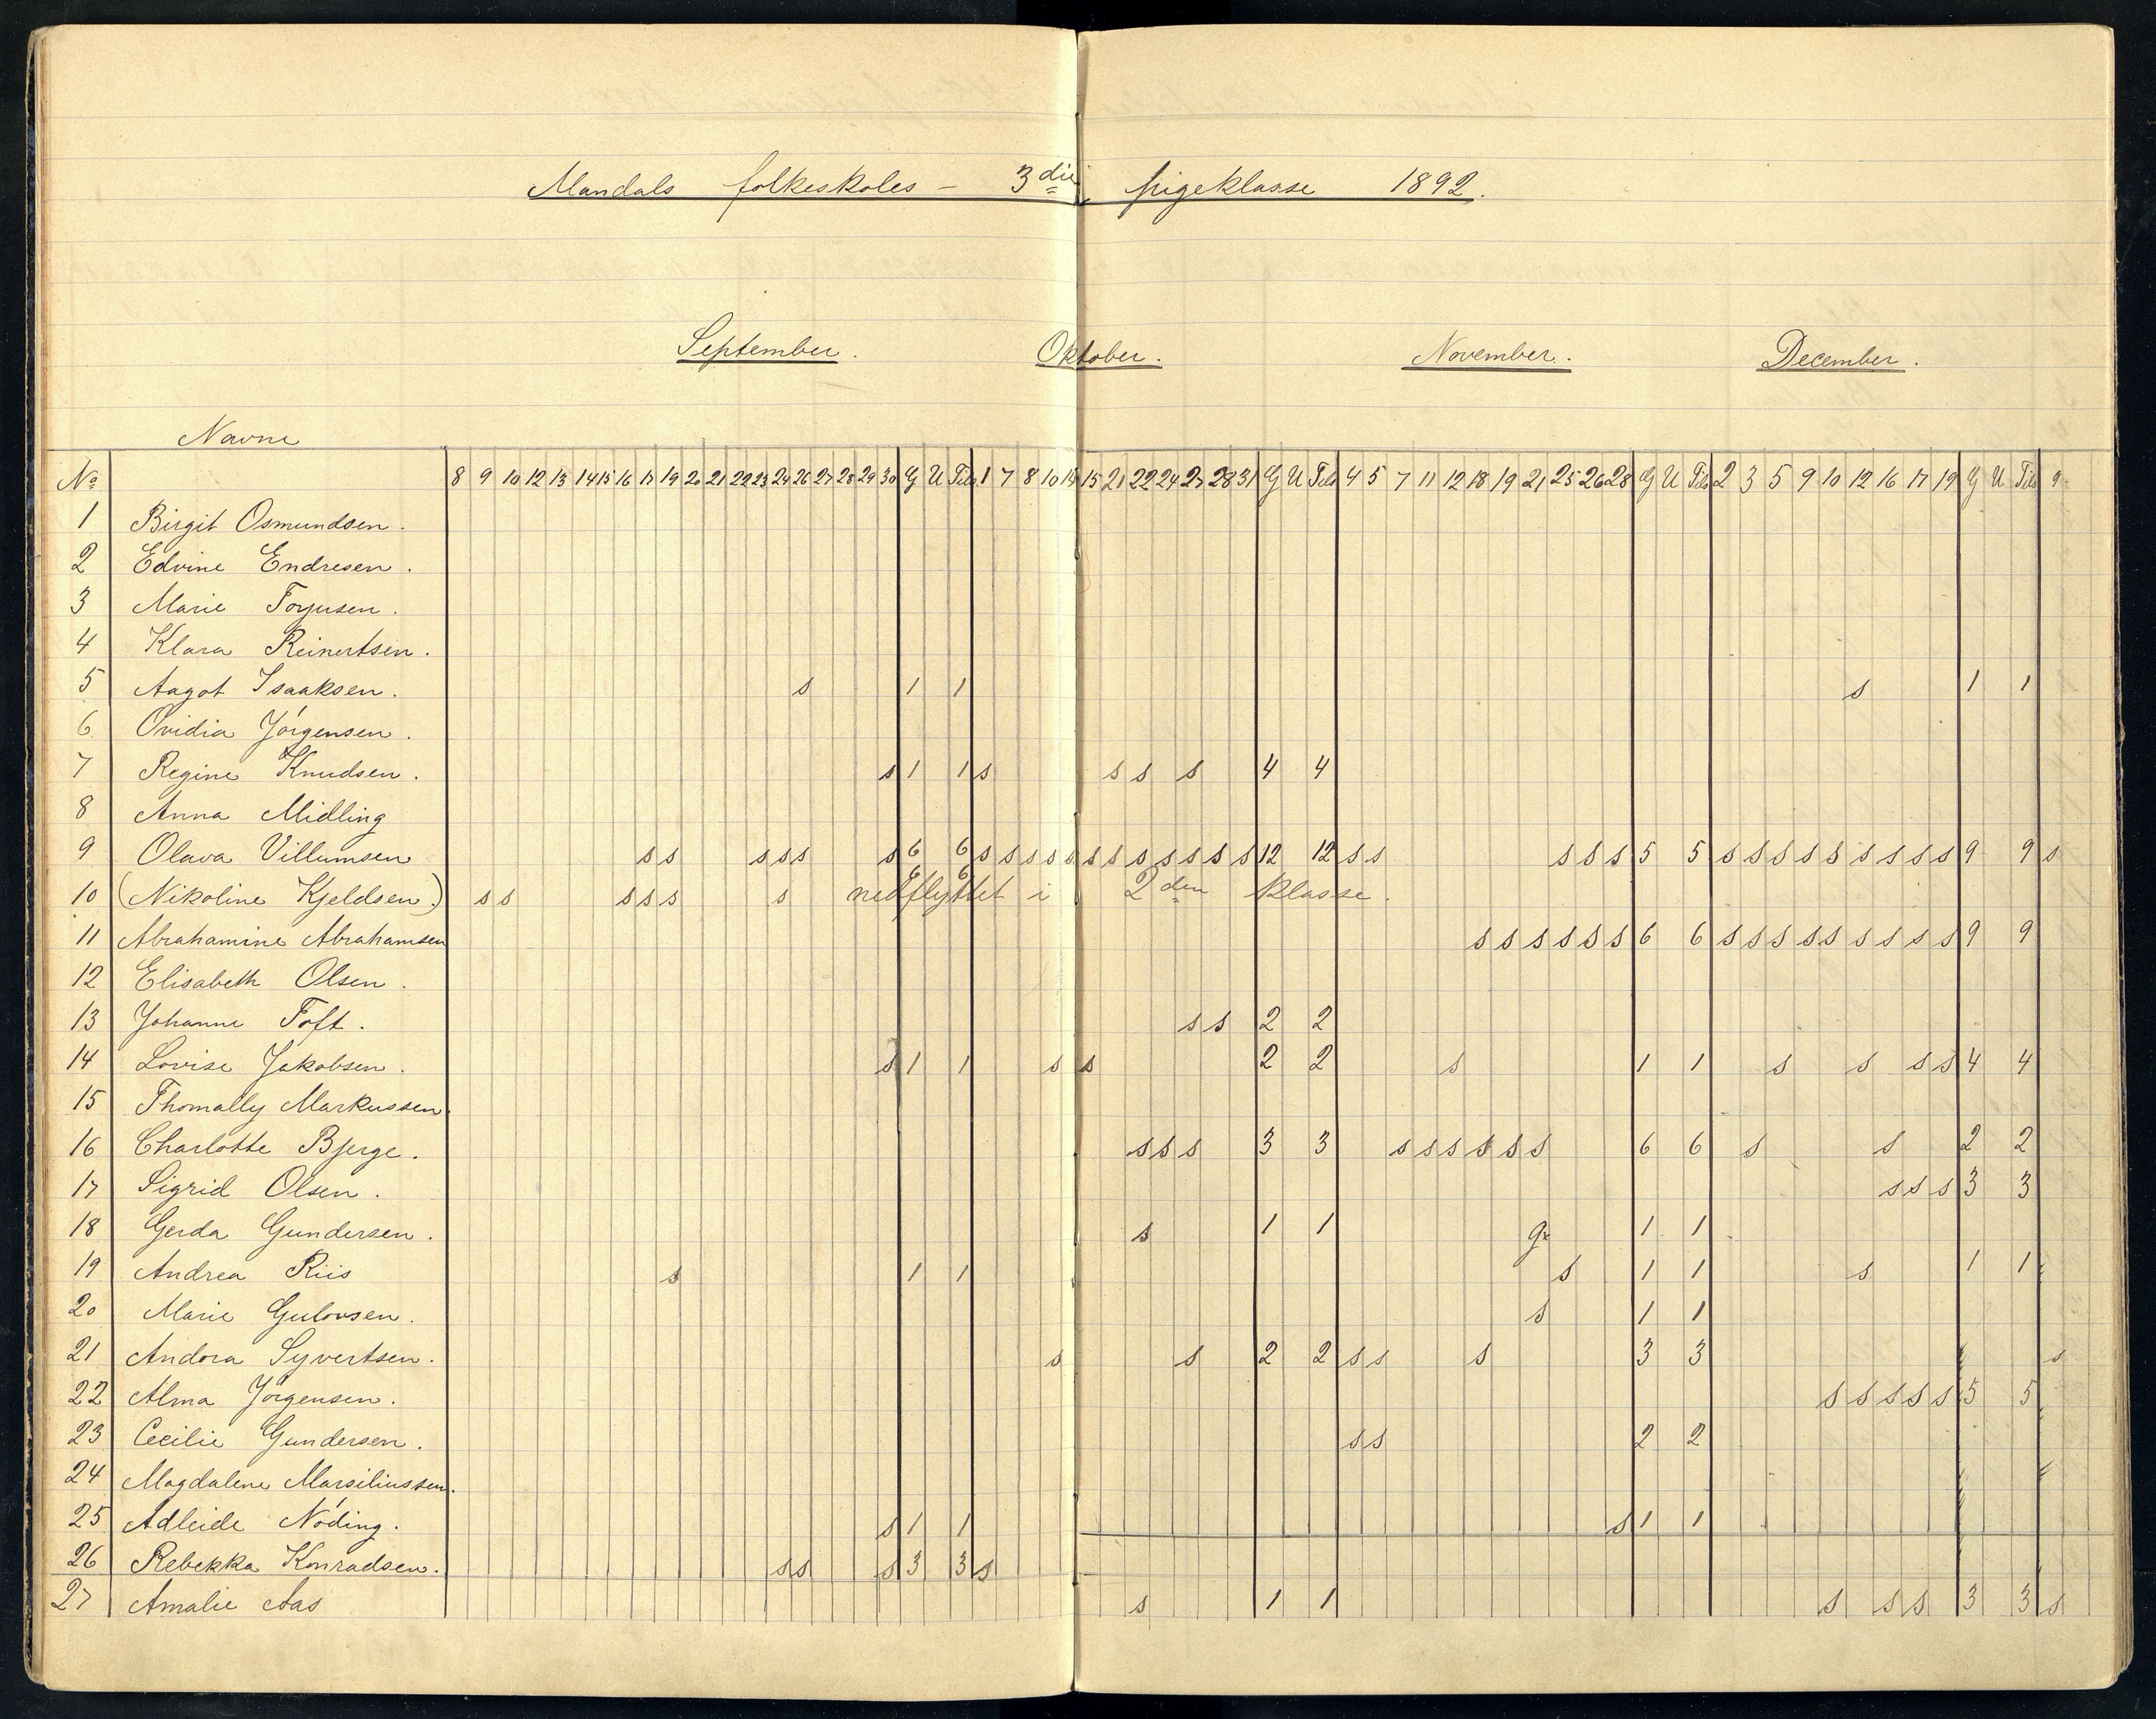 Mandals folkeskoles - 3die pigeklasse 1892.
September. Oktober. November. December.
Navne
No 8 9 10 12 13 14 15 16 17 19 20 21 22 23 24 26 27 28 29 30 G U Tils 1 7 8 10 14 15 21 22 24 27 28 31 G U Tils 4 5 7 11 12 18 19 21 25 26 28 G U Tils 2 3 5 9 10 12 16 17 19 G U Tils 9
1 Birgit Osmundsen.
2 Edvine Endresen.
3 Marie
4 Klara Reinertsen.
5 Aagot Isaaksen. s 1 1 s 1 1
6 Ovidia Jórgensen.
7 Regine Knudsen. s 1 1 s s s s 4 4
8 Anna Midling
9 Olava Villumsen s s s s s s 6 6 s s s s s s s s s s s s 12 12 s s s s s 5 5 s s s s s s s s s 9 9 s
10 (Nikoline Kjeldsen.) s s s s s s 6 6 nedflyttet i 2den klasse.
11 Abrahamine Abrahamsen s s s s s s 6 6 s s s s s s s s s 9 9
12 Elisabeth Olsen.
13 Johanne Toft. s s 2 2
14 Lovise Jakobsen. s 1 1 s s 2 2 s 1 1 s s s s 4 4
15 Thomally Markussen.
16 Charlotte Bjerge. s s s 3 3 s s s s s s 6 6 s s 2 2
17 Sigrid Olsen. s s s 3 3
18 Gerda Gundersen. s 1 1 g 1 1
19 Andrea Riis s 1 1 s 1 1 s 1 1
20 Marie Gulovsen. s 1 1
21 Andora Syvertsen. s s 2 2 s s s 3 3 s
22 Alma Jórgensen. s s s s s 5 5
23 Cecilie Gundersen. s s 2 2
24 Magdalene Marsiliussen.
25 Adleide Nóding. s 1 1 s 1 1
26 Rebekka Konradsen. s s s 3 3 s
27 Amalie Aas s 1 1 s s s 3 3 s